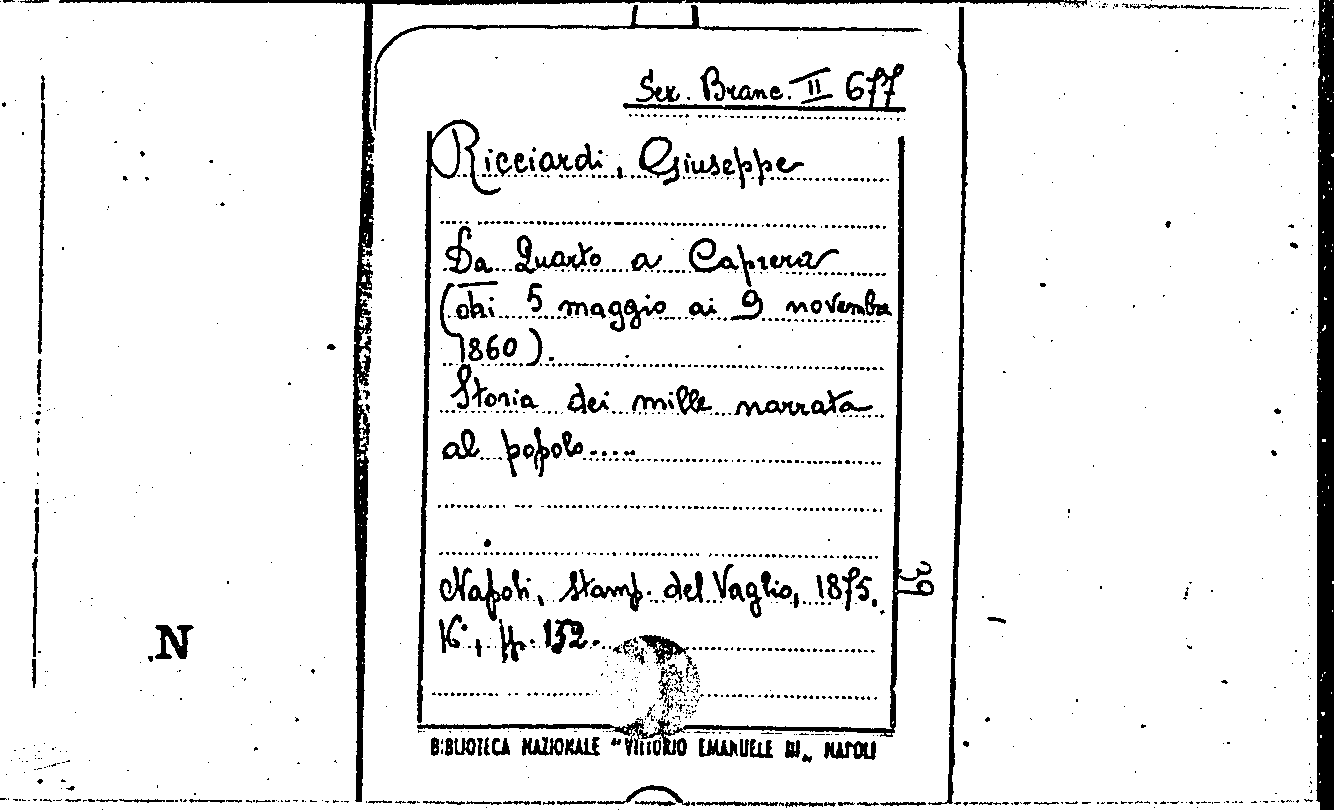 Sez. Branc. II 677
Ricciardi, Giuseppe
Da Quarto a Caprera
(dai 5 maggio ai 9 novembre
1860).
Storia dei mille narrata
al popolo.....
Napoli, Stamp. del Vaglio, 1875.
16°, pp. 132.
39
N
BIBLIOTECA NAZIONALE "VITTORIO EMANUELE III„ NAPOLI